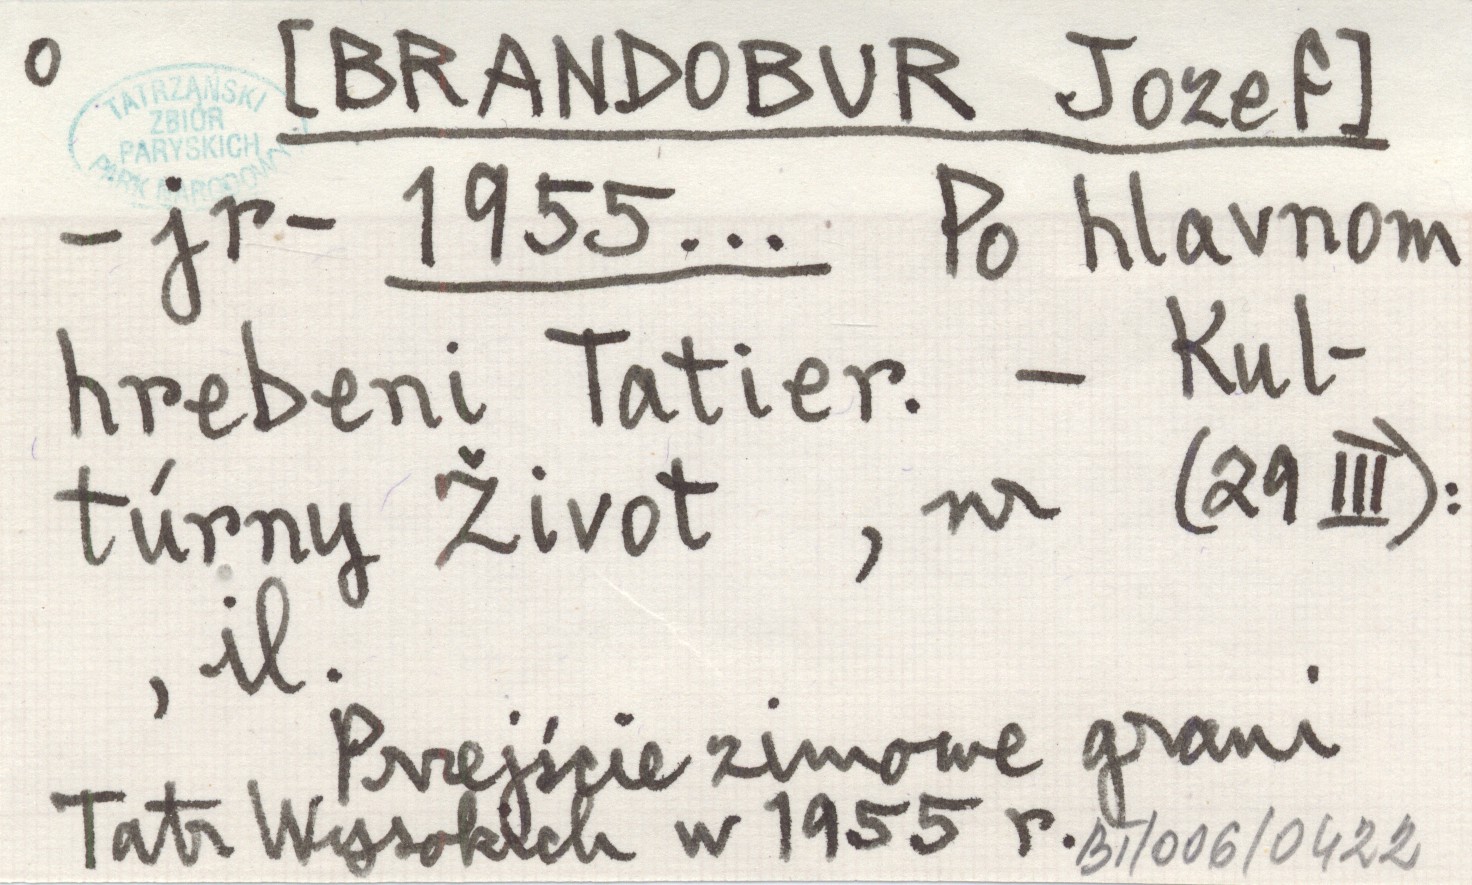 o [BRANDOBUR Jozef]
TATRZAŃSKI
ZBIÓR
PARYSKICH
PARK NARODOWY
-jr- 1955... Po hlavnom
hrebeni Tatier. - Kul-
túrny Život , nr (29 III):
, il.
Przejście zimowe grani
Tatr Wysokich w 1955 r.
BT/006/0422